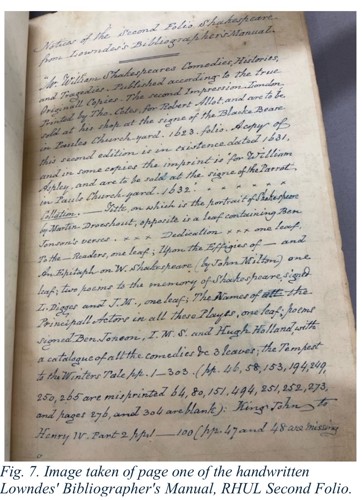 Notices of the Second Folio Shakespeare
from Lowndes's Bibliographer's Manual.
"Mr. William Shakespeares Comedies, Histories,
and Tragedies. Published according to the true
Originall Copies. The second Impression. London.
Printed by Tho. Cotes, for Robert Allot, and are to be
sold at his shop at the signe of the Blacke Beare
in Paules Church-yard. 1623. folio. A copy of
this second edition is in existence dated 1631,
and in some copies the imprint is for William
Aspley, and are to be sold at the signe of the Parrot,
in Pauls Church-yard. 1632.
Collation. — Title, on which is the portrait of Shakespeare
by Martin Droeshout, opposite is a leaf containing Ben
Jonson's verses. x x x Dedication x x x one leaf.
To the — Readers, one leaf; Upon the Effigies of — and
An Epitaph on W. Shakespeare (by John Milton) one
leaf; two poems to the memory of Shakespeare, signed
L. Digges and J. M., one leaf; The Names of the
Principall Actors in all these Playes, one leaf; poems
signed Ben Jonson, I. M. S. and Hugh Holland, with
a catalogue of all the comedies &c 3 leaves; the Tempest
to the Winters Tale pp. 1—303. (pp. 46, 58, 153, 194, 249,
250, 265 are misprinted 64, 80, 151, 494, 251, 252, 273,
and pages 276, and 304 are blank): King John to
Henry IV. Part 2 pp. 1 — 100 (pp. 47 and 48 are missing
Fig. 7. Image taken of page one of the handwritten
Lowndes' Bibliographer's Manual, RHUL Second Folio.